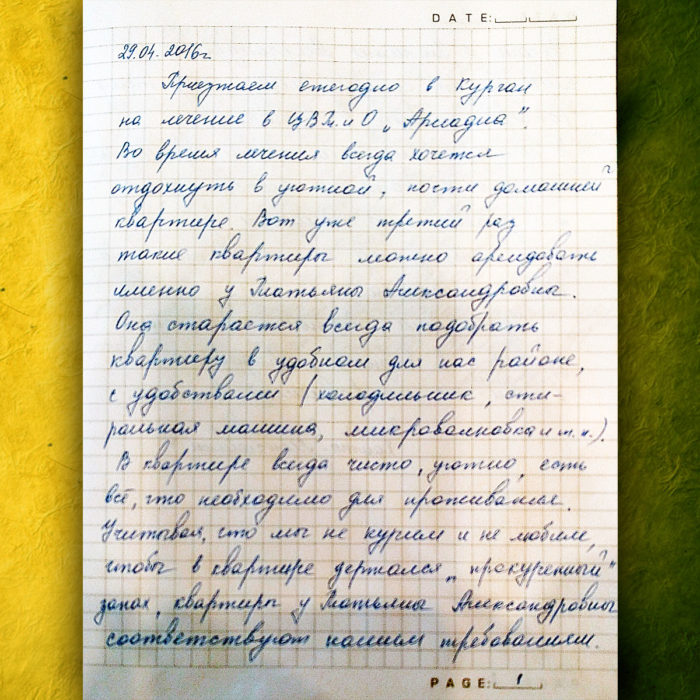 DATE:
29.04.2016г
Приезжаем ежегодно в Курган
на лечение в ЦВМ. и О „Ариадна".
Во время лечения всегда хочется
отдохнуть в уютной, почти домашней
квартире. Вот уже третий раз
такие квартиры можно арендовать
именно у Татьяны Александровны.
Она старается всегда подобрать
квартиру в удобном для нас районе,
с удобствами (холодильник, сти-
ральная машина, микроволновка и т.п.).
В квартире всегда чисто, уютно, есть
всё, что необходимо для проживания.
Учитывая, что мы не курим и не любим,
чтобы в квартире держался „прокуренный"
запах, квартиры у Татьяны Александровны
соответствуют нашим требованиям.
PAGE: 1